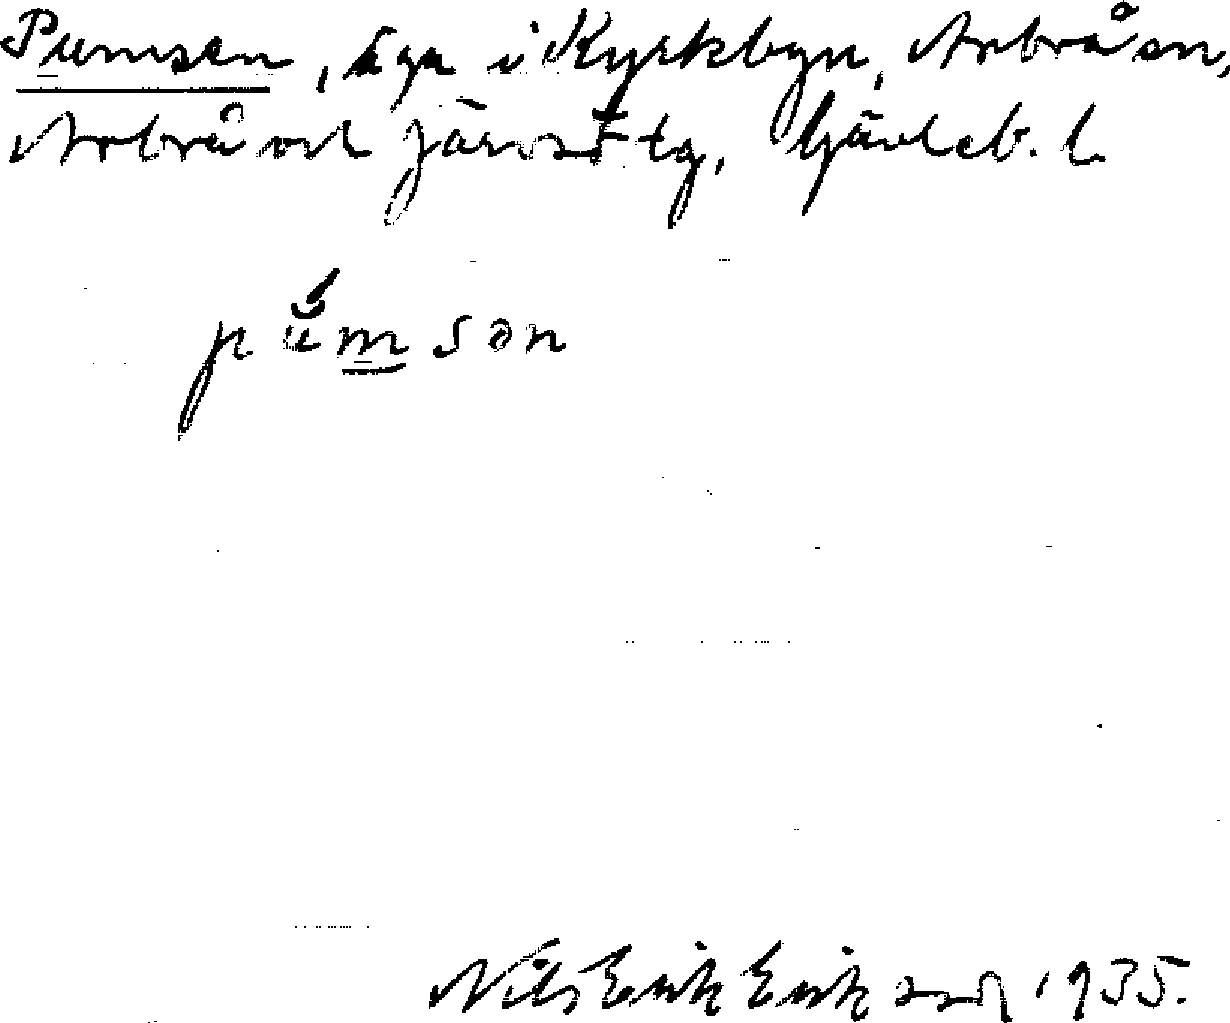 Pumsen, äga i Kyrkbyn, Arbrå sn,
Arbrå och Järvsö tg, Gävleb. l.
pŭ́m̲sən
Nils Erik Eriksson 1935.